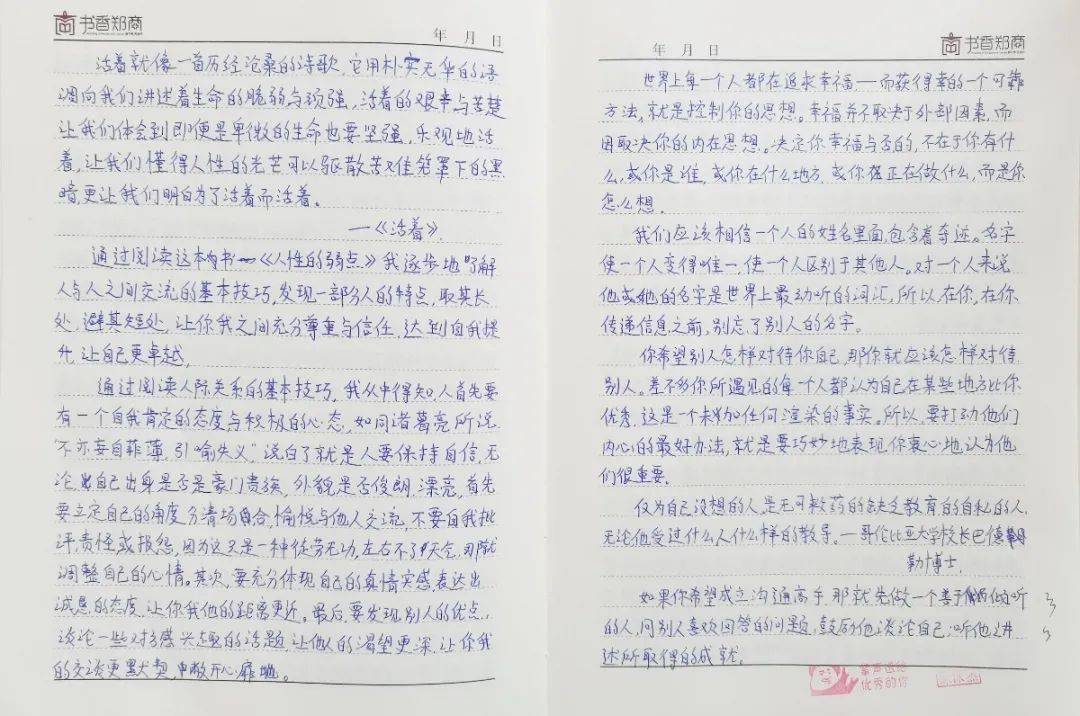 书香郑商
年 月 日
活着就像一首历经沧桑的诗歌，它用朴实无华的语
调向我们讲述着生命的脆弱与顽强，活着的艰辛与苦楚
让我们体会到即便是卑微的生命也要坚强，乐观地活
着，让我们懂得人性的光芒可以驱散苦难笼罩下的黑
暗，更让我们明白为了活着而活着。
—《活着》.
通过阅读这本书—《人性的弱点》我逐步地了解
人与人之间交流的基本技巧，发现一部分人的特点，取其长
处，避其短处，让你我之间充分尊重与信任，达到自我提
升，让自己更卓越，
通过阅读人际关系的基本技巧，我从中得知，人首先要
有一个自我肯定的态度与积极的心态，如同诸葛亮所说
"不亦妄自菲薄，引喻失义"说白了就是人要保持自信，无
论自己出身是否是豪门贵族，外貌是否俊朗，漂亮，首先
要立定自己的角度，分清场合，愉悦与他人交流，不要自我批
评，责怪或抱怨，因为这只是一种徒劳无功，左右不了天气，那就
调整自己的心情。其次，要充分体现自己的真情实感，表达出
诚恳的态度，让你我他的距离更近。最后，要发现别人的优点，
谈论一些对方感兴趣的话题，让他人的渴望更深，让你我
的交谈更默契，更敞开心扉地。
年 月 日
书香郑商
世界上每一个人都在追求幸福—而获得幸的一个可靠
方法，就是控制你的思想。幸福并不取决于外部因素，而
因取决你的内在思想。决定你幸福与否的，不在于你有什
么，或你是谁，或你在什么地方，或你正在做什么，而是你
怎么想.
我们应该相信一个人的姓名里面，包含着奇迹。名字
使一个人变得唯一，使一个人区别于其他人。对一个人来说
他或她的名字是世界上最动听的词汇，所以，在你，在你
传递信息之前，别忘了别人的名字。
你希望别人怎样对待你自己，那你就应该怎样对待
别人。差不多你所遇见的每一个人都认为自己在某些地方比你
优秀，这是一个未加任何渲染的事实。所以，要打动他们
内心的最好办法，就是要巧妙地表现，你衷心地认为他
们很重要.
仅为自己设想的人，是无可救药的缺乏教育的自私的人，
无论他受过什么人什么样的教导。—哥伦比亚大学校长巴德
勒博士.
如果你希望成立沟通高手，那就先做一个善于倾听
的人，问别人喜欢回答的问题，鼓励他谈论自己，听他讲
述所取得的成就.
掌声送给
优秀的你